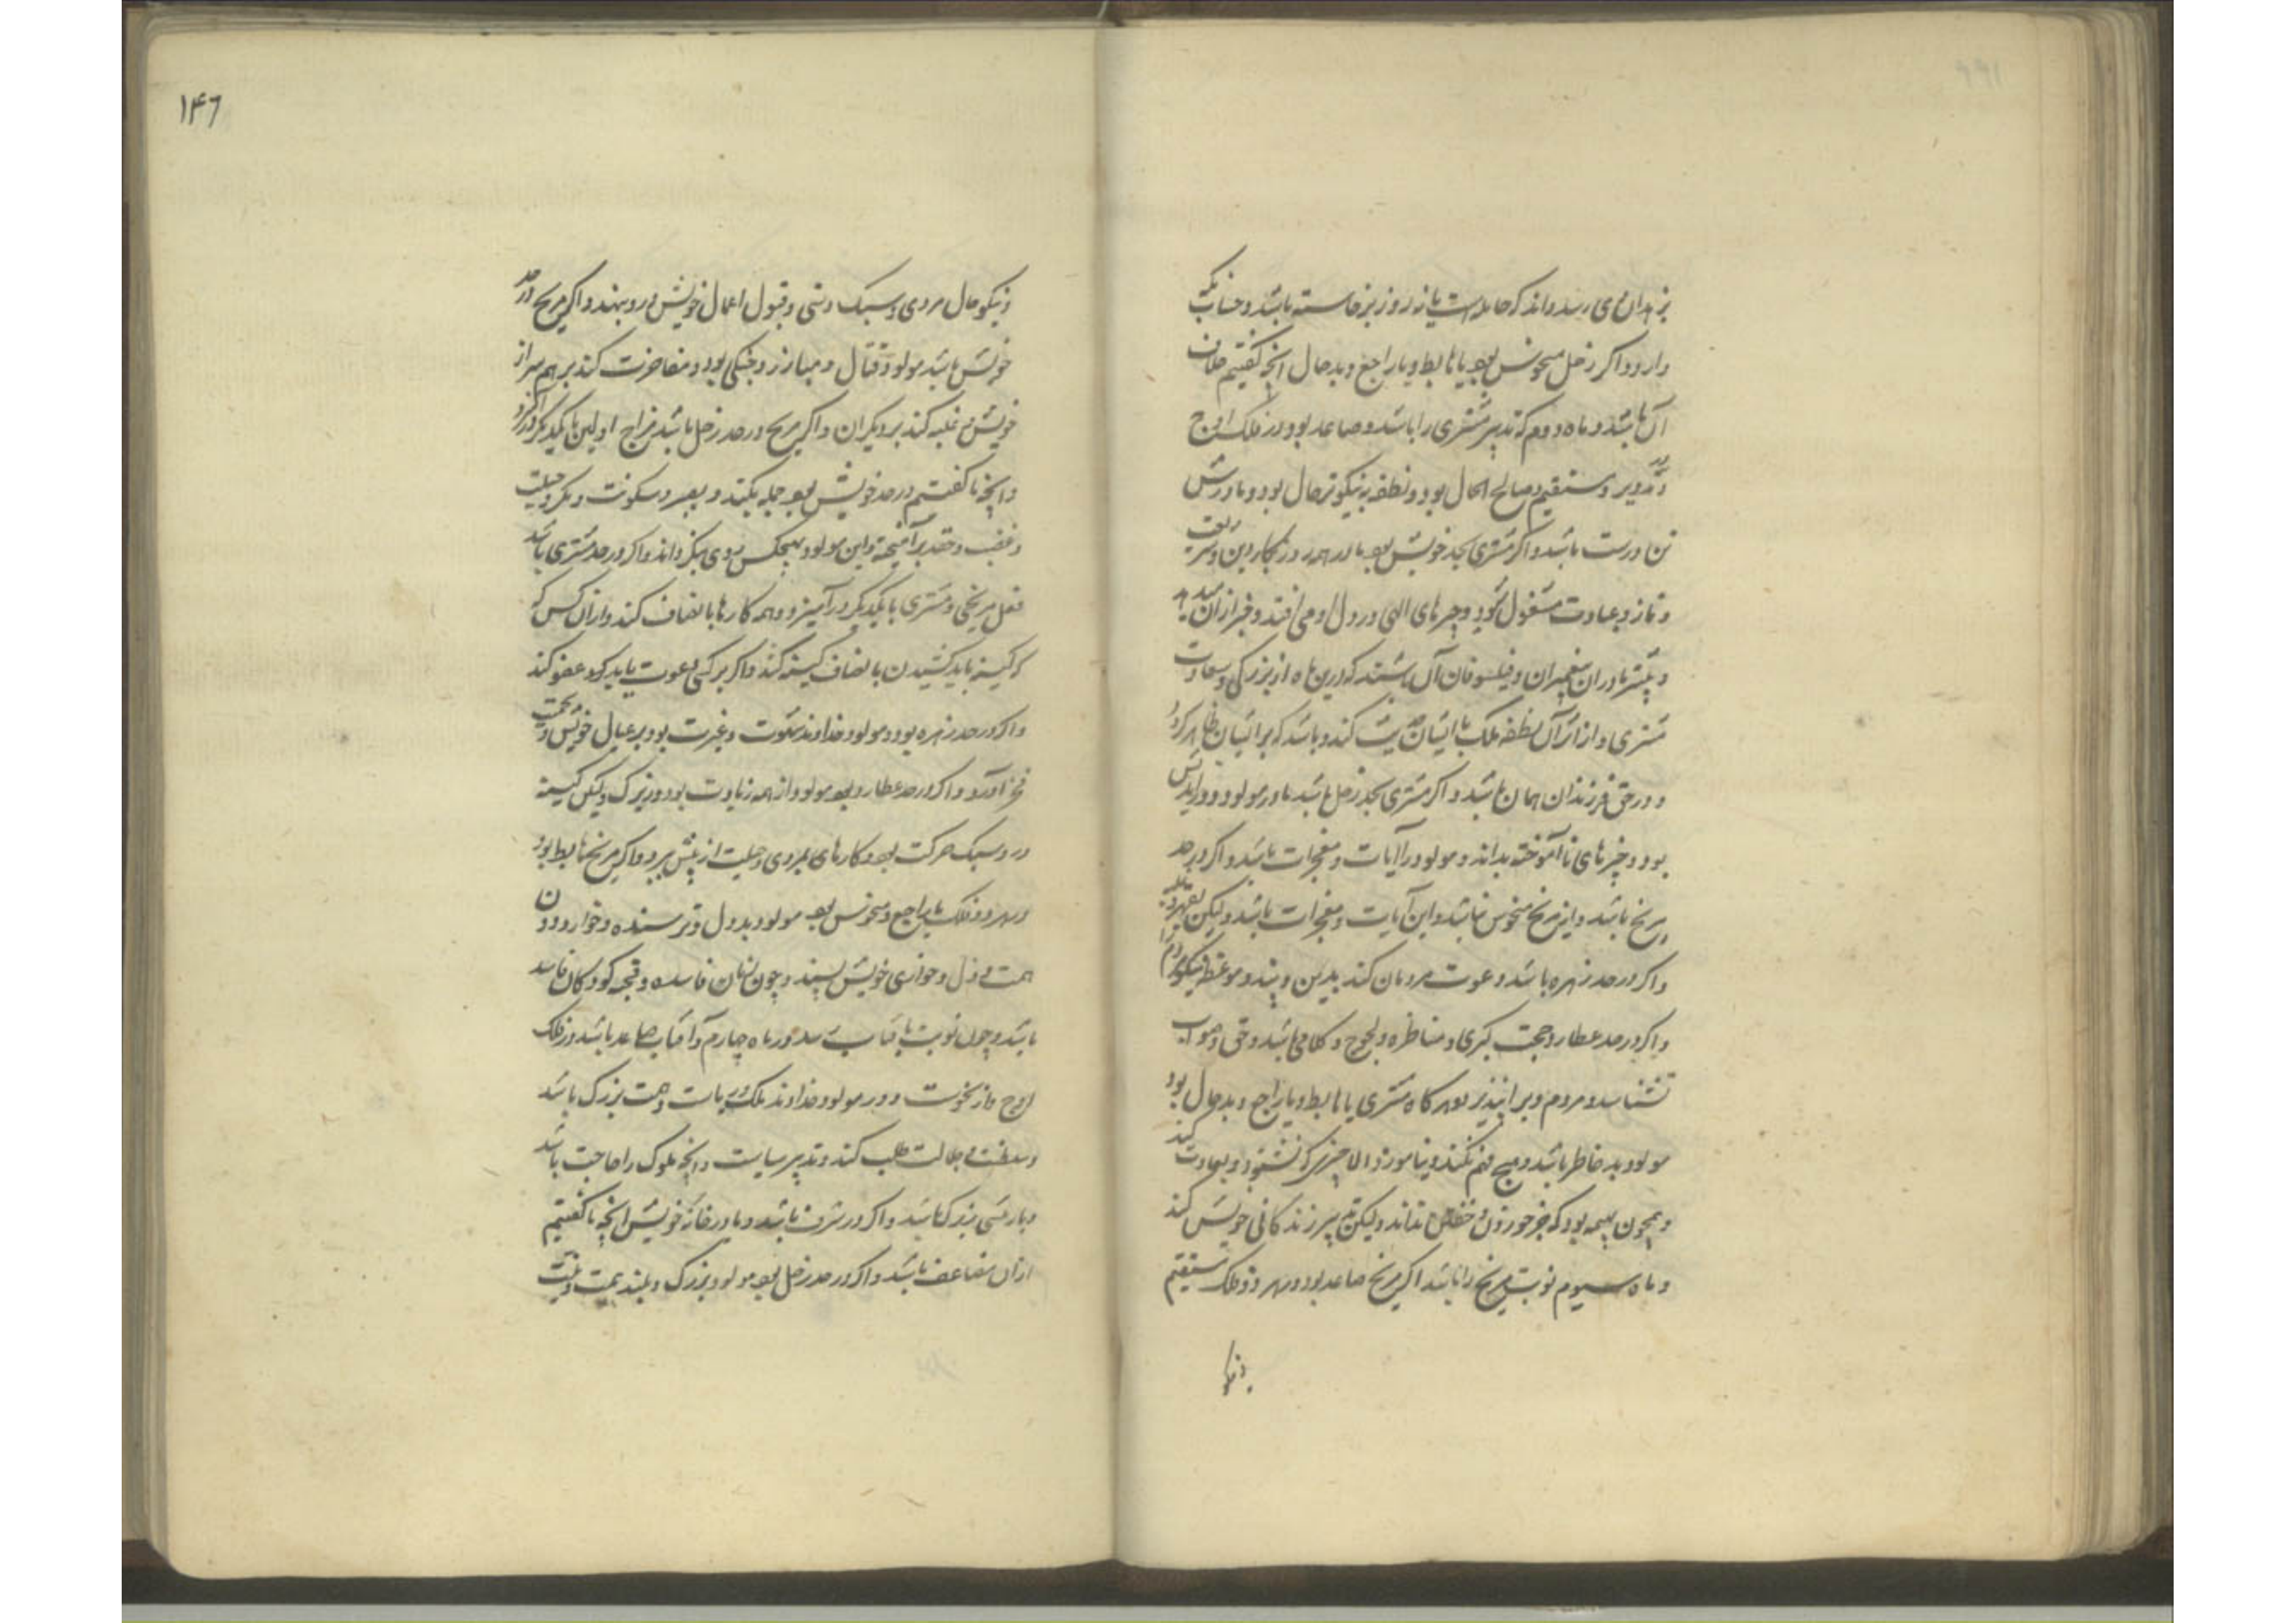 بزهدان می رسد و اند که حامله است یا نه روز برخاسته باشد و حساب نکه
دارد و اگر زحل منحوس بود یا هابط و یا راجع و بدحال انچه گفتیم خلاف
آن باشد و ماه دوم که تدبیر مشتری را باشد و صاعد بود در فلک اوج
و تدویر و مستقیم و صالح الحال بود و نطفه نیکوتر حال بود و مادرش
تن درست باشد و اگر مشتری بحد خویش بود مادر همه روز بکار دین و شریعت
و نماز و عبادت مشغول شود و چیزهای الهی در دل او می افتد و خبر از آن میدهد
و بیشتر مادران پیغمبران و فیلسوفان آن باشند که درین ماه از بزرگی و سعادت
مشتری و از اثر آن نطفه ملک با ایشان کند و باشد که بر ایشان ظاهر کردد
و در حق فرزندان همان باشد و اگر مشتری بحد زحل باشد مادر مولود دوراندیش
بود و چیزهای نا آموخته بداند و مولود را آیات و معجزات باشد و اگر در حد
مریخ باشد و این مریخ منحوس نباشد و این آیات و معجزات باشد و لیکن بقهر و غلبه
و اگر در حد زهره باشد دعوت مردمان کند بدین و پند و موعظه نیکو مردم را
و اگر در حد عطارد حجت گیری و مناظره و لجوج و کلامی باشد و حق و صواب
نشناسد و مردم ویرا نپذیرند و هر گاه مشتری یا هابط و یا راجع و بدحال بود
مولود بد خاطر باشد و هیچ فهم نکند و نیاموزد الا چیزی که بشنود و بعادت کند
و همچون بهیمه بود که جز خوردن و خفتن نداند و لیکن تدبیر زندگانی خویش کند
و ماه سیوم نوبت مریخ را باشد اگر مریخ صاعد بود و هر دو فلک مستقیم
و نیکو
۱۴۶
و نیکو حال مردی و سبک دستی و قبول اعمال خویش درو بنهد و اگر مریخ در حد
خویش باشد مولود قتال و مبارز و جنگی بود و مفاخرت کند بر همسران
خویش و غلبه کند بر دیگران و اگر مریخ در حد زحل باشد مزاج اولین با یکدیگر
و انچه ما گفتیم در حد خویش بود جمله بکند و بصبر و سکونت و مکر و حیلت
و غضب و حقد بر آمیخته و این مولود بهیچکس روی بنگرداند و اگر در حد مشتری باشد
فعل مریخی و مشتری با یکدیگر درآمیزد و همه کارها بانصاف کند و از آن کس که
کینه باید کشیدن بانصاف کینه کشد و اگر بر کسی عقوبت باید کرد عفو کند
و اگر در حد زهره بود مولود خداوند شهوت و غیرت بود و بر عیال خویش
فخر آورد و اگر در حد عطارد بود مولود از همه زیادت بود و زیرک و لیکن کیسه
در و سبک حرکت بود و کارهای بمردی و حیلت از پیش ببرد و اگر مریخ هابط بود
در هر دو فلک یا راجع و منحوس بود مولود بددل و ترسنده و خوار و دون
همت و ذل و خواری خویش پسندد و چون زنان فاسده و قحبه کودکان فاسد
باشد و چون نوبت بآفتاب رسد در ماه چهارم و آفتاب صاعد باشد در فلک
اوج و از نحوست دور مولود خداوند ملک و ریاست و همت بزرگ باشد
و سلطنت و جلالت طلب کند و تدبیر سیاست و انچه ملوک را حاجت باشد
و پادشاهی بزرگ باشد و اگر در شرف باشد و یا در خانه خویش انچه ما گفتیم
از آن مضاعف باشد و اگر در حد زحل بود مولود بزرگ و بلند همت